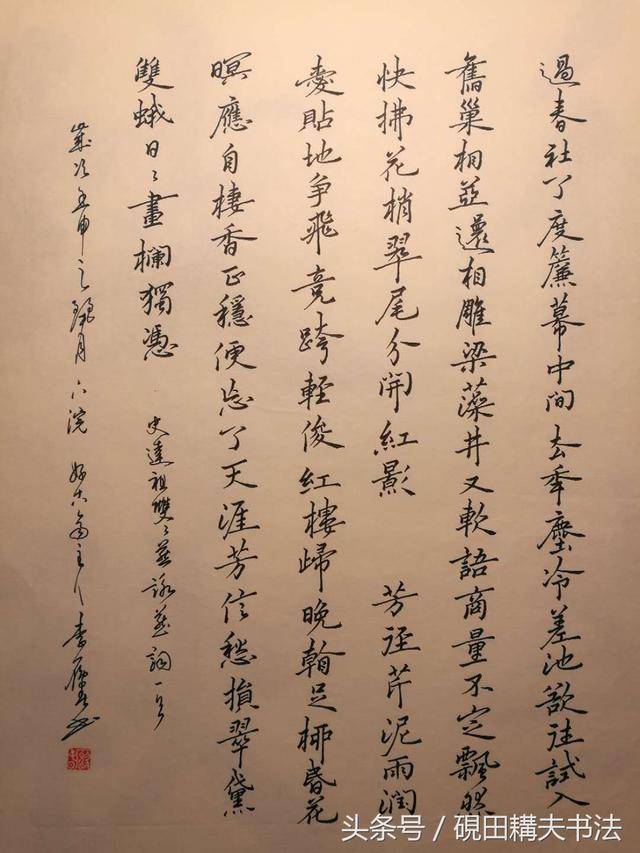 過春社了度簾幕中間去秊塵冷差池欲住試入
舊巢相並還相雕梁藻井又軟語商量不定飄然
快拂花梢翠尾分開紅影 芳徑芹泥雨潤
愛貼地爭飛競誇輕俊紅樓歸晚看足柳昏花
暝應自棲香正穩便忘了天涯芳信愁損翠黛
雙蛾日〻畫欄獨憑 史達祖雙〻燕詠燕詞一首
歲次壬申之月六浣 好古斋主人李
头条号／硯田耩夫书法